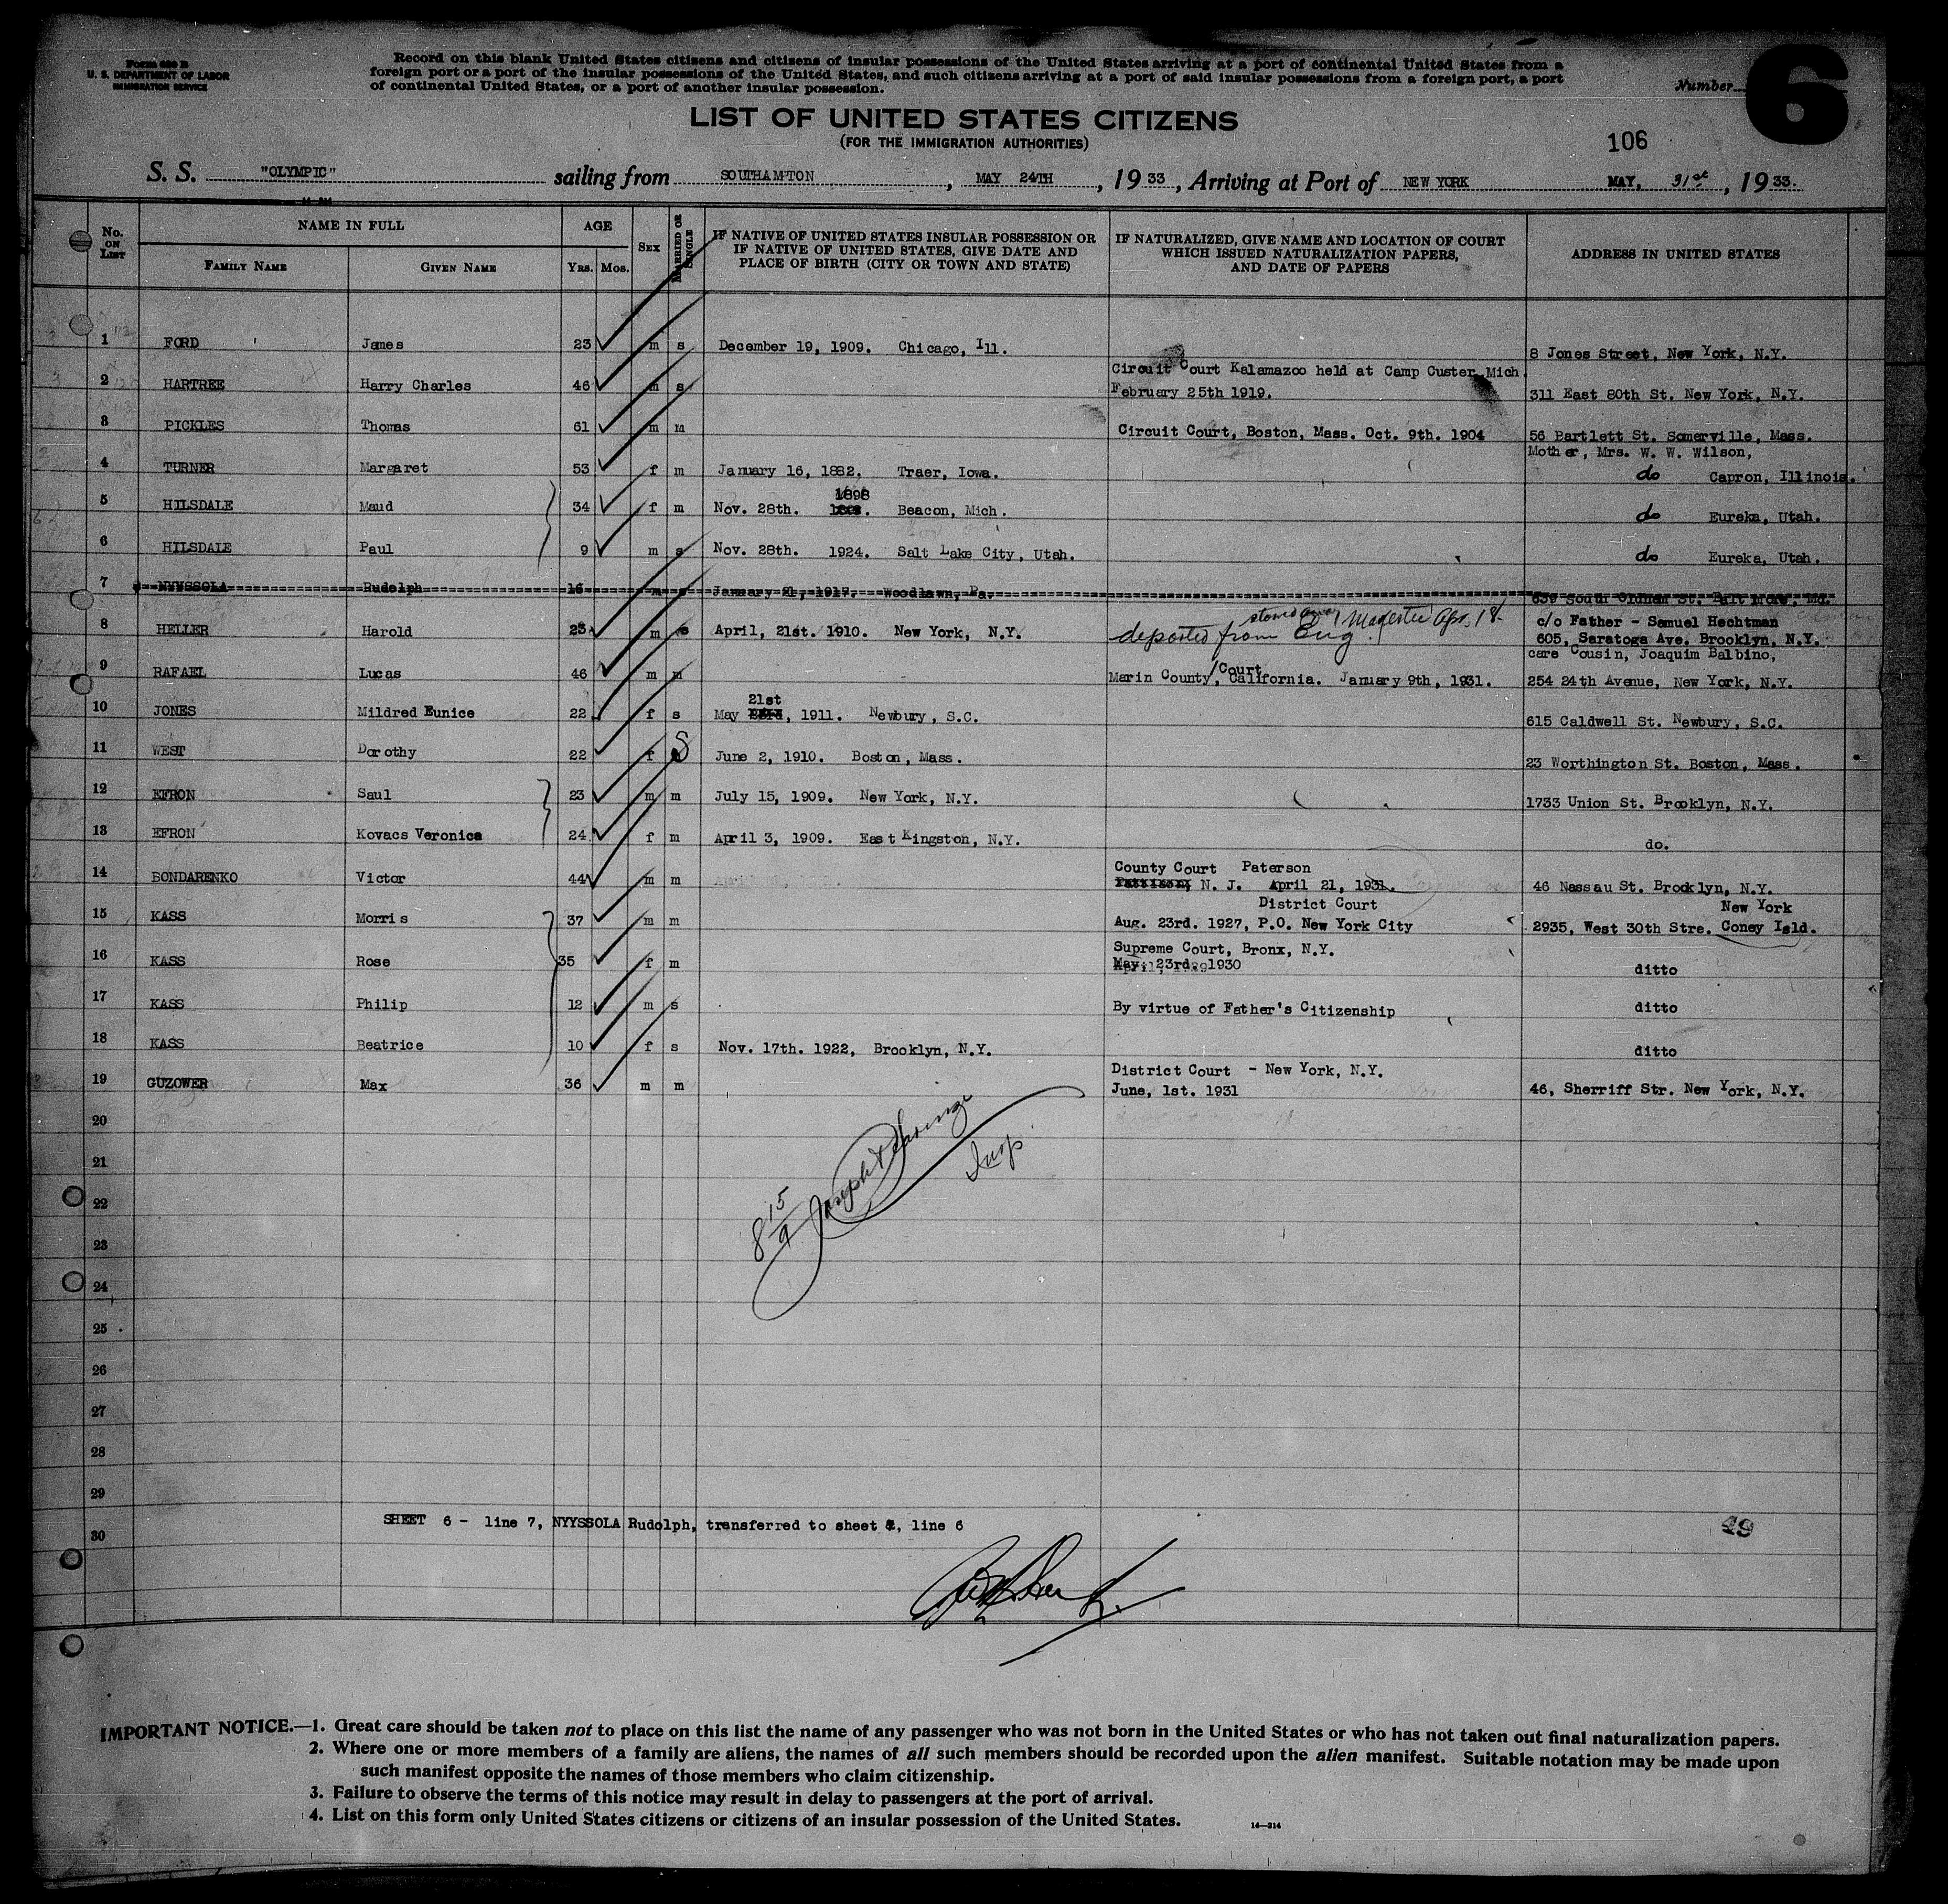 Form 630 B
U. S. DEPARTMENT OF LABOR
IMMIGRATION SERVICE
Record on this blank United States citizens and citizens of insular possessions of the United States arriving at a port of continental United States from a
foreign port or a port of the insular possessions of the United States, and such citizens arriving at a port of said insular possessions from a foreign port, a port
of continental United States, or a port of another insular possession.
Number 6
LIST OF UNITED STATES CITIZENS
(FOR THE IMMIGRATION AUTHORITIES)
106
S. S. "OLYMPIC" sailing from SOUTHAMPTON, MAY 24TH, 1933, Arriving at Port of NEW YORK MAY, 31st, 1933.
No. ON LIST
NAME IN FULL
FAMILY NAME GIVEN NAME
AGE
YRS. MOS.
SEX
MARRIED OR SINGLE
IF NATIVE OF UNITED STATES INSULAR POSSESSION OR
IF NATIVE OF UNITED STATES, GIVE DATE AND
PLACE OF BIRTH (CITY OR TOWN AND STATE)
IF NATURALIZED, GIVE NAME AND LOCATION OF COURT
WHICH ISSUED NATURALIZATION PAPERS,
AND DATE OF PAPERS
ADDRESS IN UNITED STATES
1 FORD James 23 m s December 19, 1909. Chicago, Ill. 8 Jones Street, New York, N.Y.
2 HARTREE Harry Charles 46 m s Circuit Court Kalamazoo held at Camp Custer, Mich.
February 25th 1919. 311 East 80th St. New York, N.Y.
3 PICKLES Thomas 61 m m Circuit Court, Boston, Mass. Oct. 9th. 1904 56 Bartlett St. Somerville, Mass.
Mother, Mrs. W. W. Wilson,
4 TURNER Margaret 53 f m January 16, 1882. Traer, Iowa. do Capron, Illinois.
1898
5 HILSDALE Maud 34 f m Nov. 28th. Beacon, Mich. do Eureka, Utah.
6 HILSDALE Paul 9 m s Nov. 28th. 1924. Salt Lake City, Utah. do Eureka, Utah.
7 NYYSSOLA Rudolph 16 m s January 21, 1917. Woodlawn, Pa. 639 South Oldham St. Baltimore, Md.
8 HELLER Harold 23 m s April, 21st. 1910. New York, N.Y. stowaway Majestic Apr. 18
deported from Eng. c/o Father - Samuel Hechtman
605, Saratoga Ave. Brooklyn, N.Y.
care Cousin, Joaquim Balbino,
9 RAFAEL Lucas 46 m m Marin County, Court California. January 9th, 1931. 254 24th Avenue, New York, N.Y.
21st
10 JONES Mildred Eunice 22 f s May 23rd, 1911. Newbury, S.C. 615 Caldwell St. Newbury, S.C.
11 WEST Dorothy 22 f S June 2, 1910. Boston, Mass. 23 Worthington St. Boston, Mass.
12 EFRON Saul 23 m m July 15, 1909. New York, N.Y. 1733 Union St. Brooklyn, N.Y.
13 EFRON Kovacs Veronica 24 f m April 3, 1909. East Kingston, N.Y. do.
County Court Paterson
14 BONDARENKO Victor 44 m m N. J. April 21, 1931. 46 Nassau St. Brooklyn, N.Y.
District Court New York
15 KASS Morris 37 m m Aug. 23rd. 1927, P.O. New York City 2935, West 30th Stre. Coney Isld.
Supreme Court, Bronx, N.Y.
16 KASS Rose 35 f m May, 23rd. 1930 ditto
17 KASS Philip 12 m s By virtue of Father's Citizenship ditto
18 KASS Beatrice 10 f s Nov. 17th. 1922, Brooklyn, N.Y. ditto
District Court - New York, N.Y.
19 GUZOWER Max 36 m m June, 1st. 1931 46, Sherriff Str. New York, N.Y.
20
21
8 15/9 Joseph Insp
22
23
24
25
26
27
28
29
SHEET 6 - line 7, NYYSSOLA Rudolph, transferred to sheet 2, line 6
30 49
IMPORTANT NOTICE.—1. Great care should be taken not to place on this list the name of any passenger who was not born in the United States or who has not taken out final naturalization papers.
2. Where one or more members of a family are aliens, the names of all such members should be recorded upon the alien manifest. Suitable notation may be made upon
such manifest opposite the names of those members who claim citizenship.
3. Failure to observe the terms of this notice may result in delay to passengers at the port of arrival.
4. List on this form only United States citizens or citizens of an insular possession of the United States.
14—314